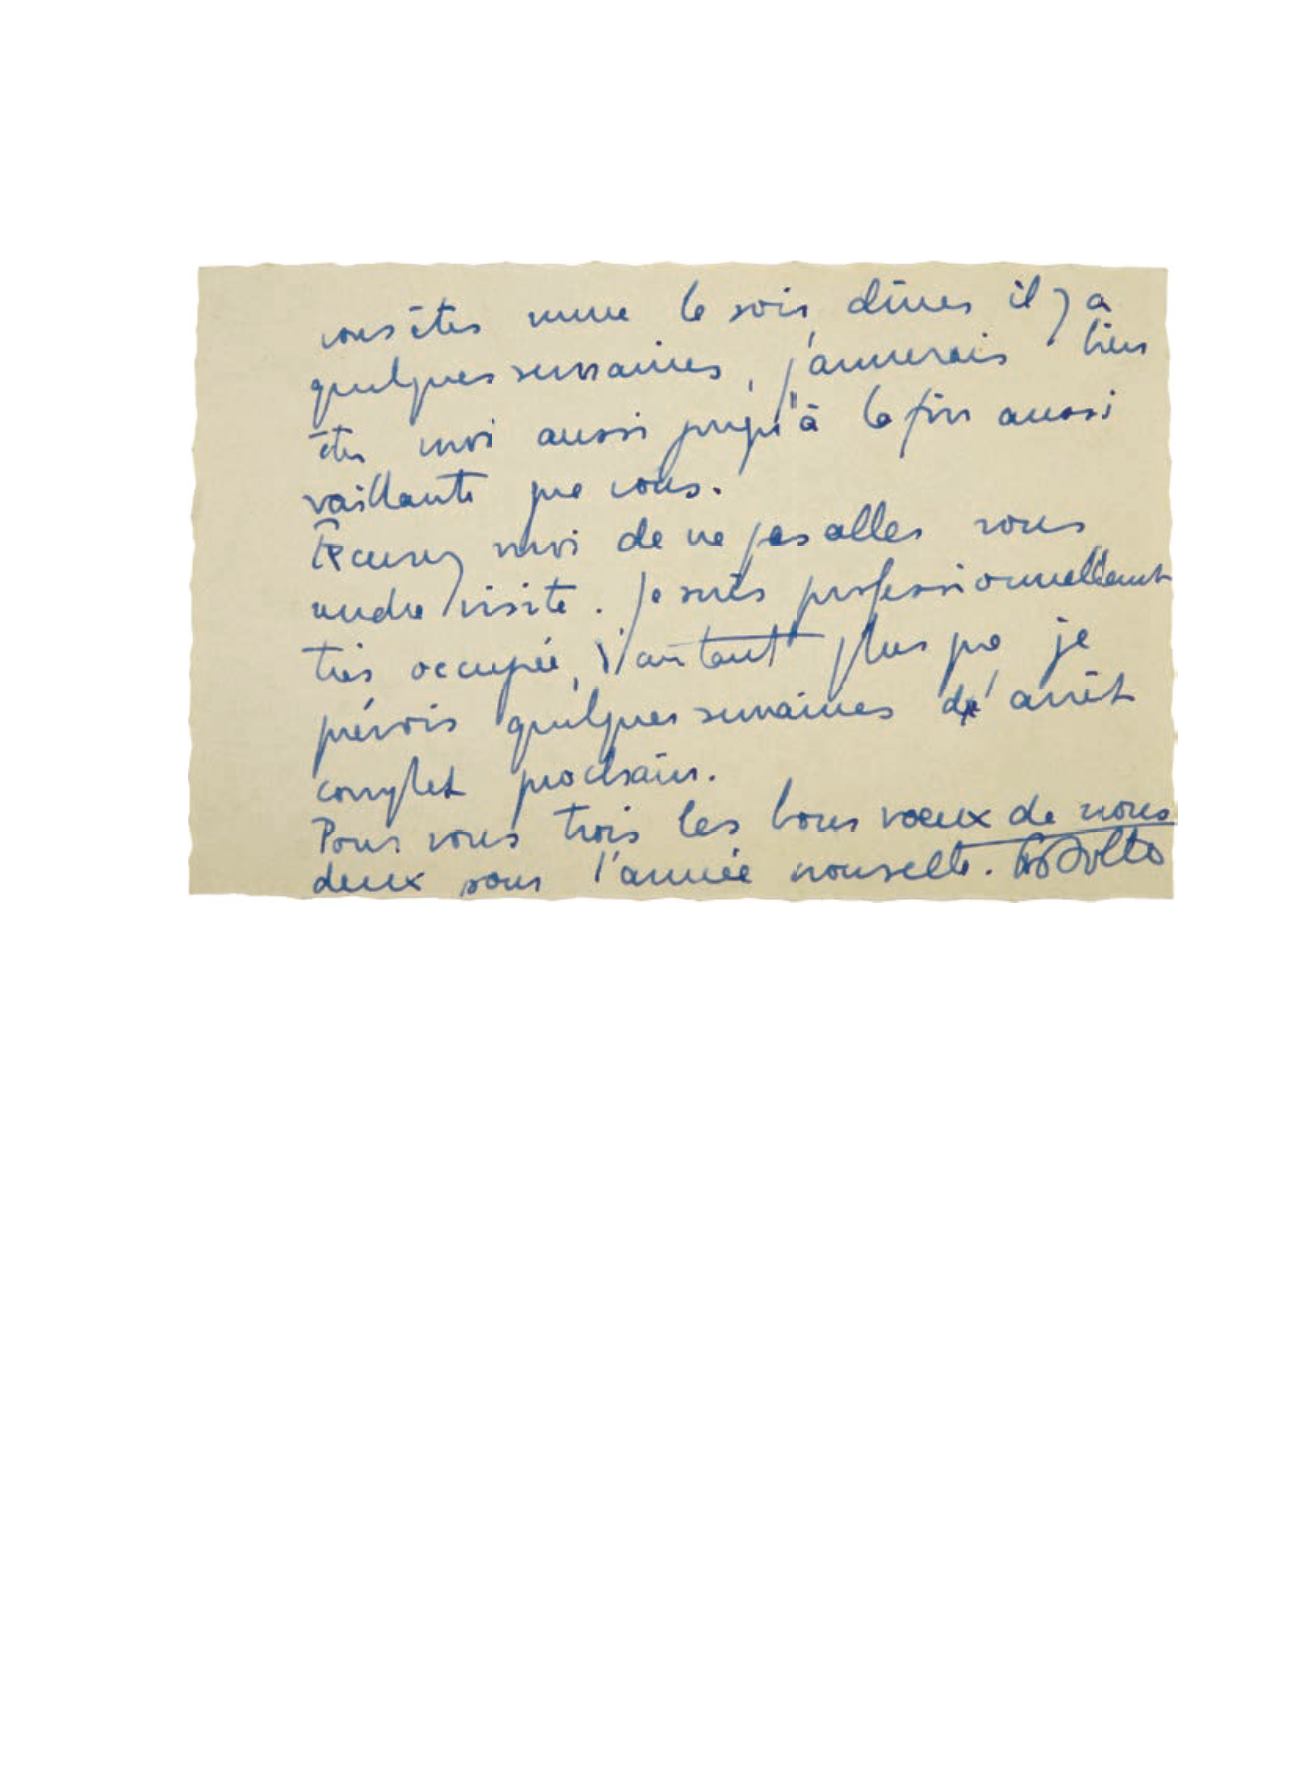 vous êtes venue le soir, dîner il y a
quelques semaines, j'aimerais bien
être moi aussi jusqu'à la fin aussi
vaillante que vous.
Excusez moi de ne pas aller vous
rendre visite. Je suis professionnellement
très occupée, d'autant plus que je
prévois quelques semaines d'arrêt
complet prochain.
Pour vous trois les bons vœux de nous
deux pour l'année nouvelle. Dolto